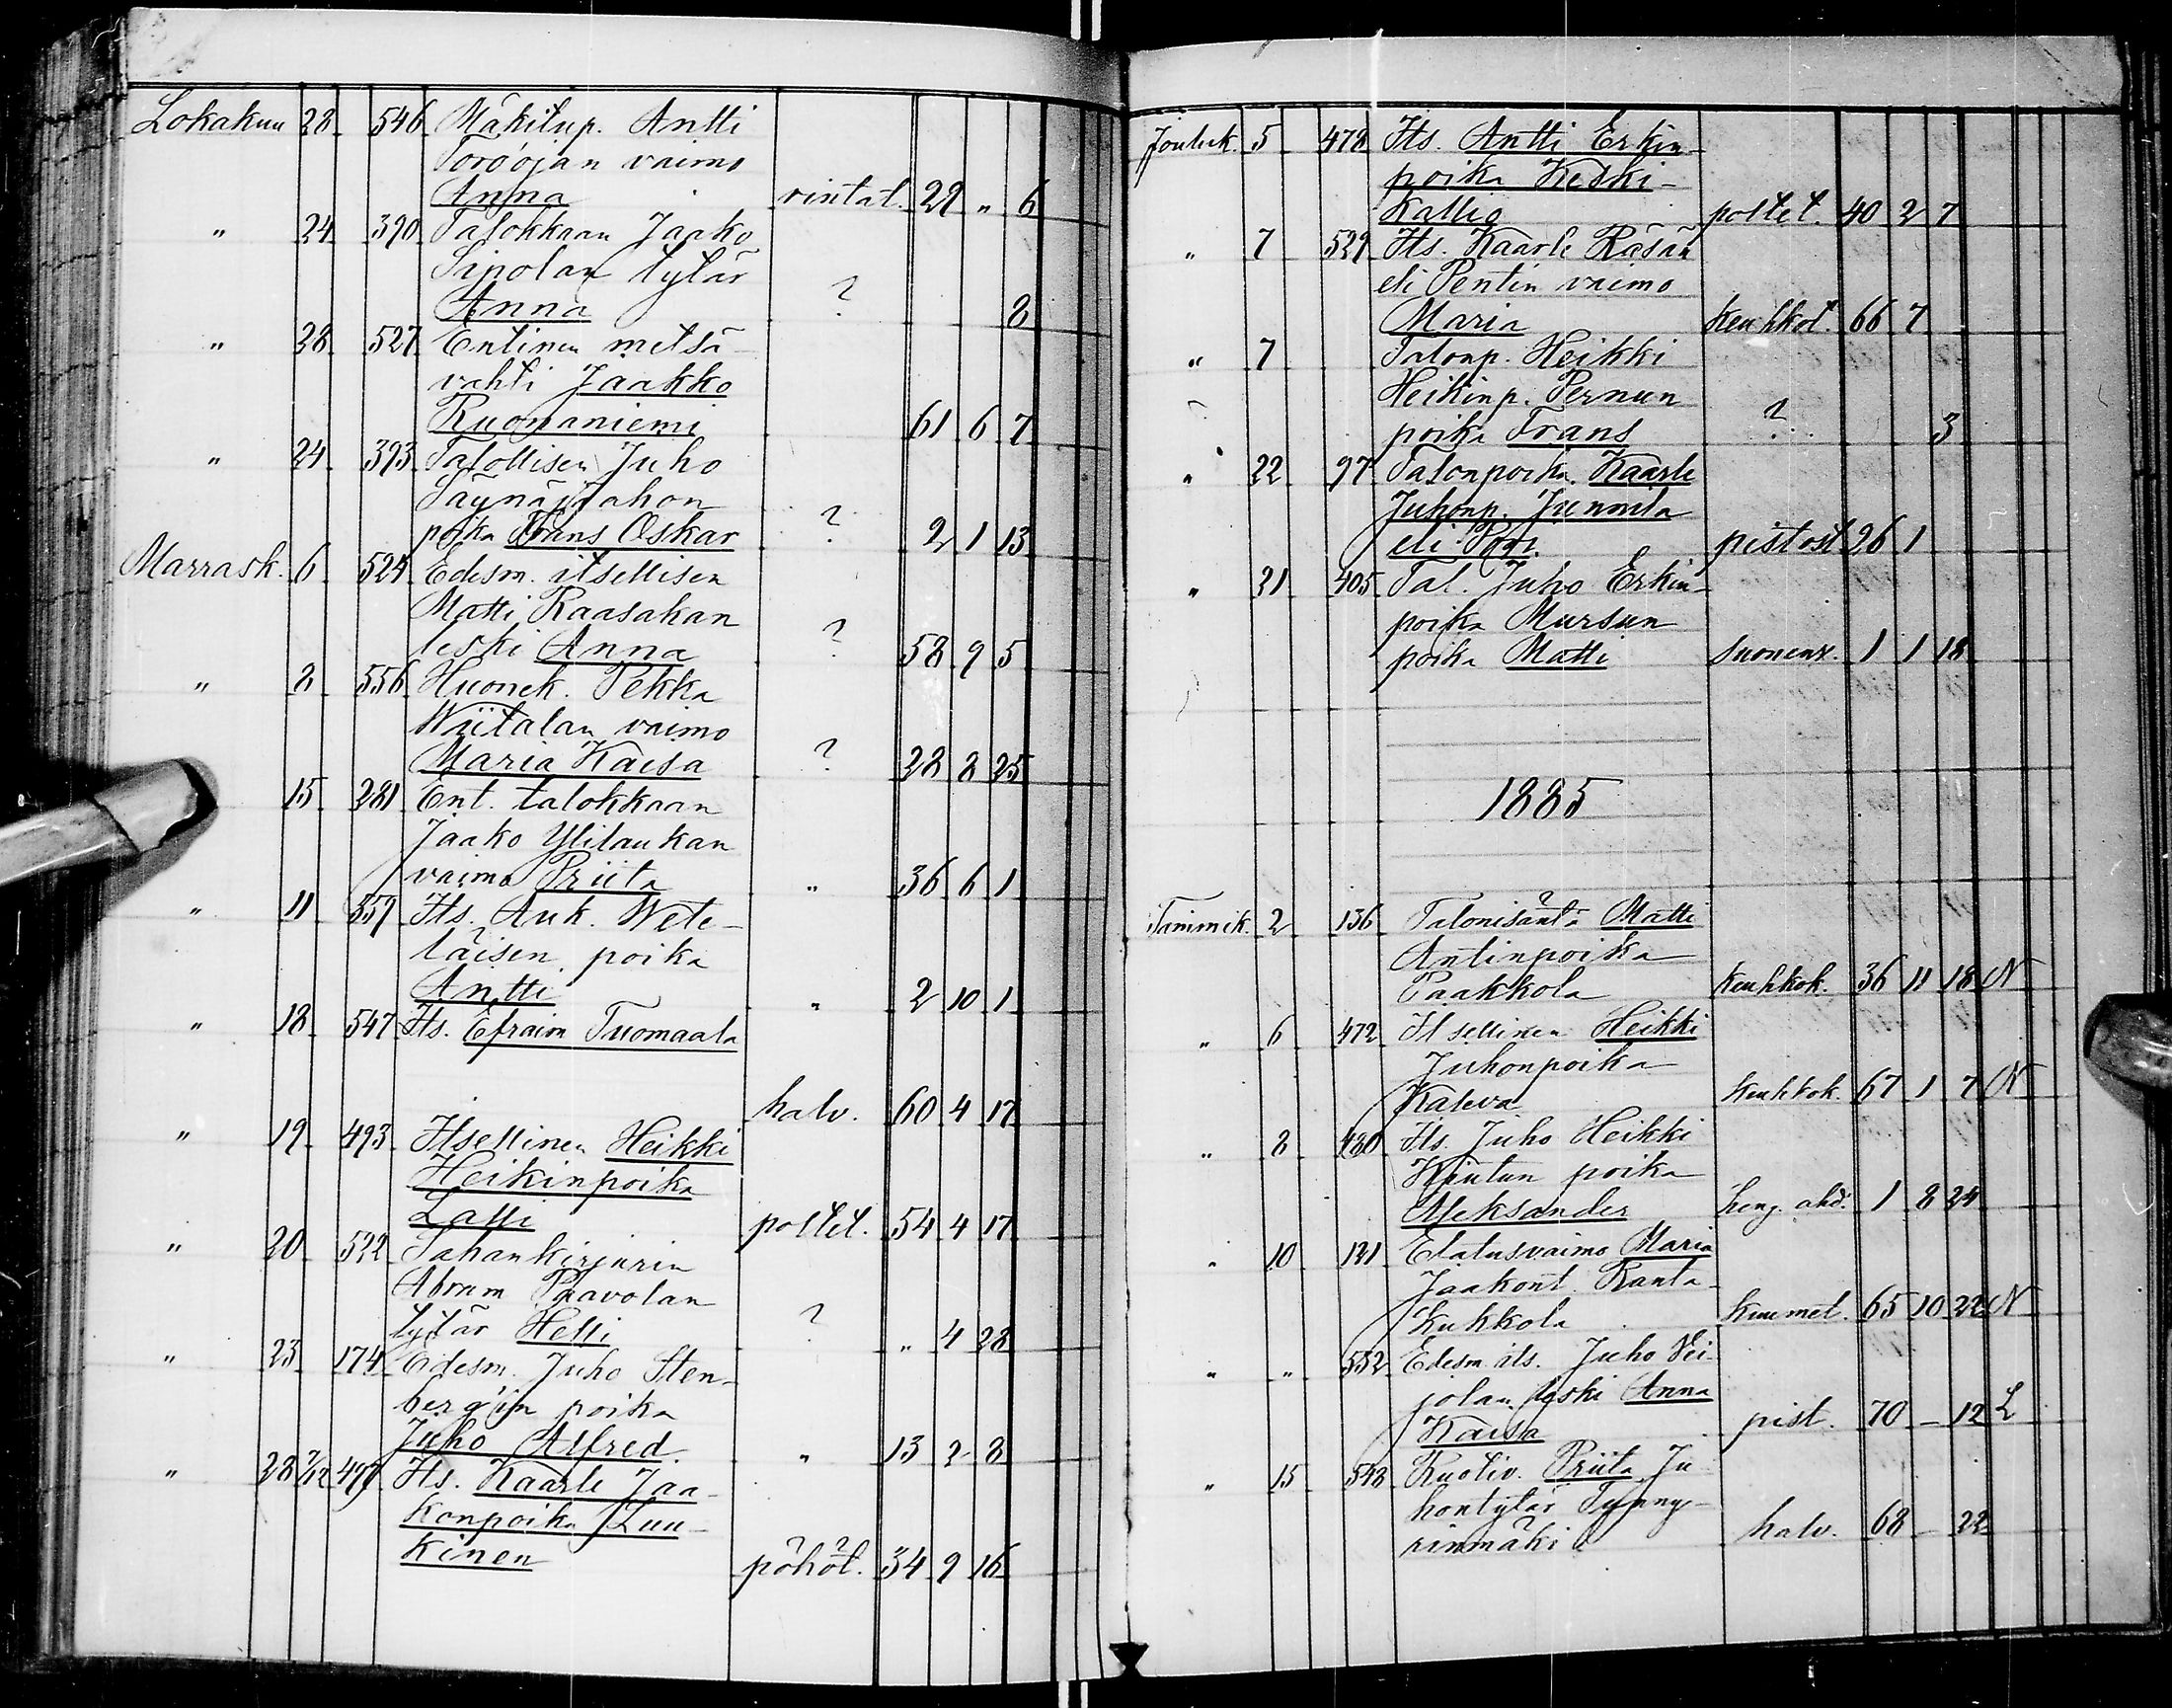 Lokakuu 28 546 Mäkitup. Antti
Torōojan vaimo
Anna rintat. 29 " 6
" 24 390 Talokkaan Jaako
Sipolan tytär
Anna ? 8
" 28 527 Entinen metsä-
vahti Jaakko
Ruonaniemi 61 6 7
" 24 393 Talollisen Juho
Säynäjäahon
poika Frans Oskar ? 2 1 13
Marrask. 6 524 Edesm. itsellisen
Matti Raasakan
leski Anna ? 58 9 5
" 8 556 Huonek. Pekka
Wiitalan vaimo
Maria Kaisa ? 28 8 25
15 281 Ent. talokkaan
Jaako Ylitaukan
vaimo Priita " 36 6 1
" 11 359 Its. Auk. Wete-
läisen poika
Antti " 2 10 1
" 18 547 Its. Efraim Tuomaala
halv. 60 4 17
" 19 493 Itsellinen Heikki
Heikinpoika
Latti poltet. 54 4 17
" 20 522 Sahankirjurin
Abram Paavolan
tytär Helli ? " 4 28
" 23 174 Edesm. Juho Sten-
berg'in poika
Juho Alfred. " 13 2 8
" 28 7/12 497 Its. Kaarle Jaa-
konpoika Luu-
kinen pöhöt. 34 9 16
Jouluk. 5 478 Its. Antti Erkin-
poika Keski-
Kallio poltet. 40 2 7
" 7 529 Its. Kaarle Räsän
eli Pentin vaimo
Maria keuhkot. 66 7
" 7 Talonp. Heikki
Heikinp. Pernun
poika Frans ? 3
" 22 97 Talonpoika Kaarle
Juhonp. Junnila
eli Pori pistost. 26 1
" 21 405 Tal. Juho Erkin-
poika Mursun
poika Matti suonenv. 1 1 18
1885
Tammik. 2 136 Talonisäntä Matti
Antinpoika
Paakkola keuhkok. 36 11 18 N
" 6 472 Itsellinen Heikki
Juhonpoika
Kaleva keuhkok. 67 1 7 N
" 8 480 Its. Juho Heikki
Kiutun poika
Aleksander heng. ahd. 1 8 24
" 10 131 Elatusvaimo Maria
Jaakont. Ranta-
Kukkola kuumet. 65 10 22 N
" " 552 Edesm. its. Juho Vei-
jolan leski Anna
Kaisa pist. 70 – 12 L
" 15 548 Ruotiv. Priita Ju-
hontytär Tynny-
rinmäki halv. 68 – 22